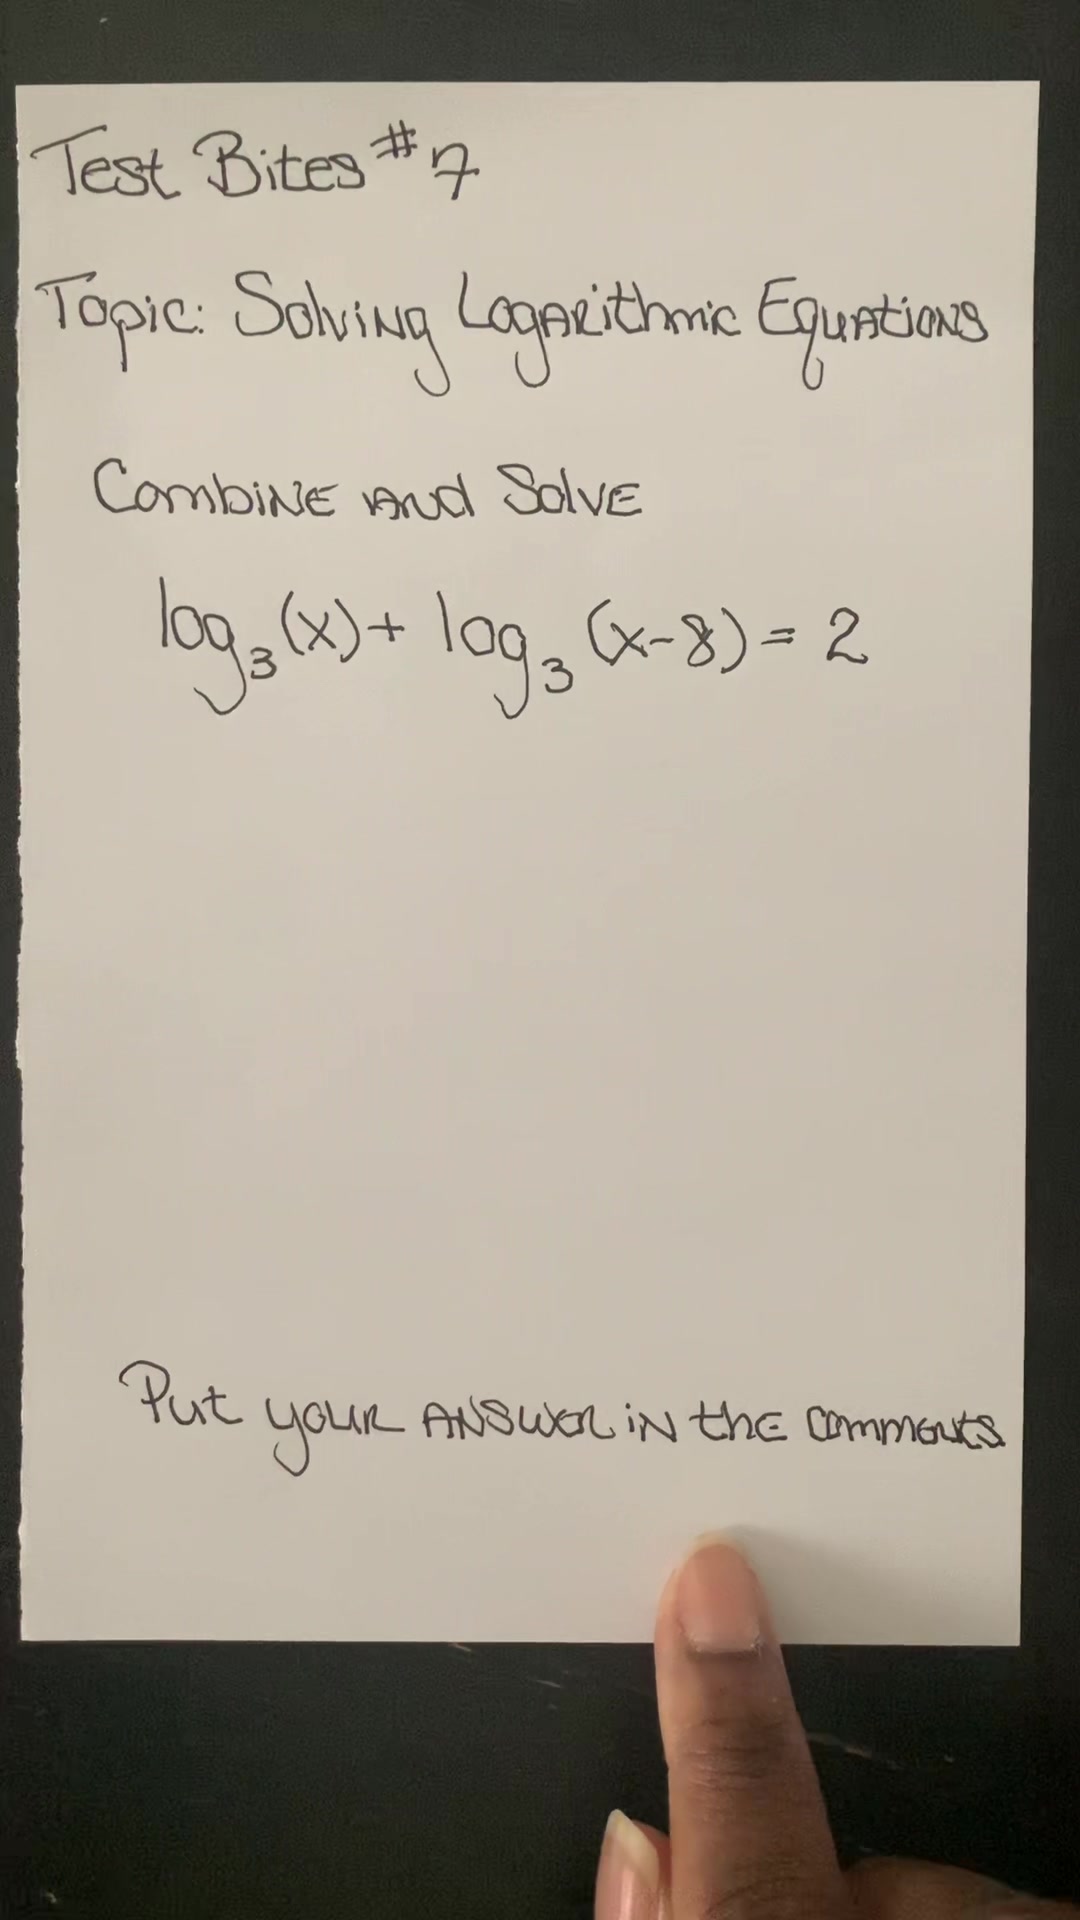 Test Bites #7
Topic: Solving Logarithmic Equations
Combine and Solve
log₃(x) + log₃(x-8) = 2
Put your answer in the comments.